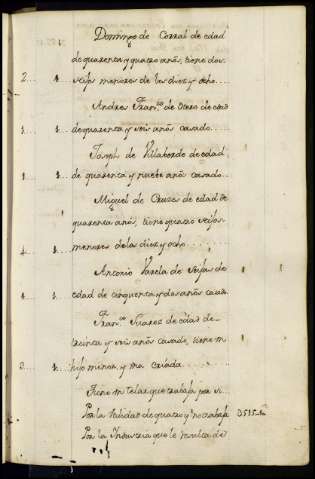 Domingo de Corral de edad
de quarenta y quatro años, tiene dos
2... 1... hijos menores de los diez y ocho...
Andres Fran.co de Otero de edad
1... 1... de quarenta y seis años casado...
Joseph de Villaborde de edad
1... 1... de quarenta y nuebe años casado...
Miguel de Cruzes de edad de
quarenta años, tiene quatro hijos
4... 1... menores de la diez y ocho...
Antonio Varela de Seijas de
1... 1... edad de cinquenta y dos años casado
Fran.co Suarez de edad de
treinta y seis años casado, tiene un
2... 1... hijo menor, y una criada...
Tiene un telar que trabaja por si...
Por la utilidad de quatro y no trabaja
Por la Industria que le resulta de